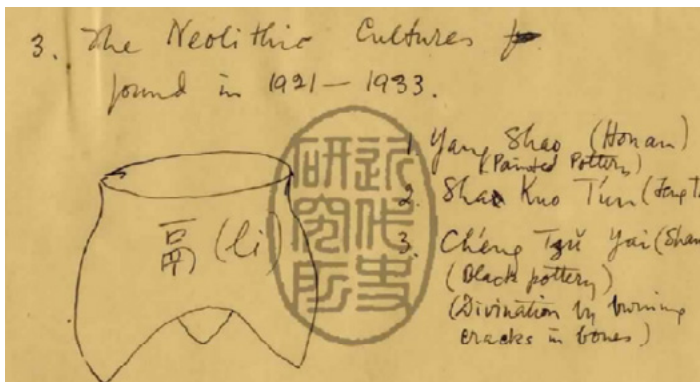 3. The Neolithic Cultures
found in 1921 — 1933.
1. Yang Shao (Honan)
(Painted Pottery)
2. Sha Kuo T'un (Feng T
3. Ch'eng Tzŭ Yai (Shan
(Black pottery)
(Divination by burning
cracks in bones)
鬲 (li)
近代史
研究所